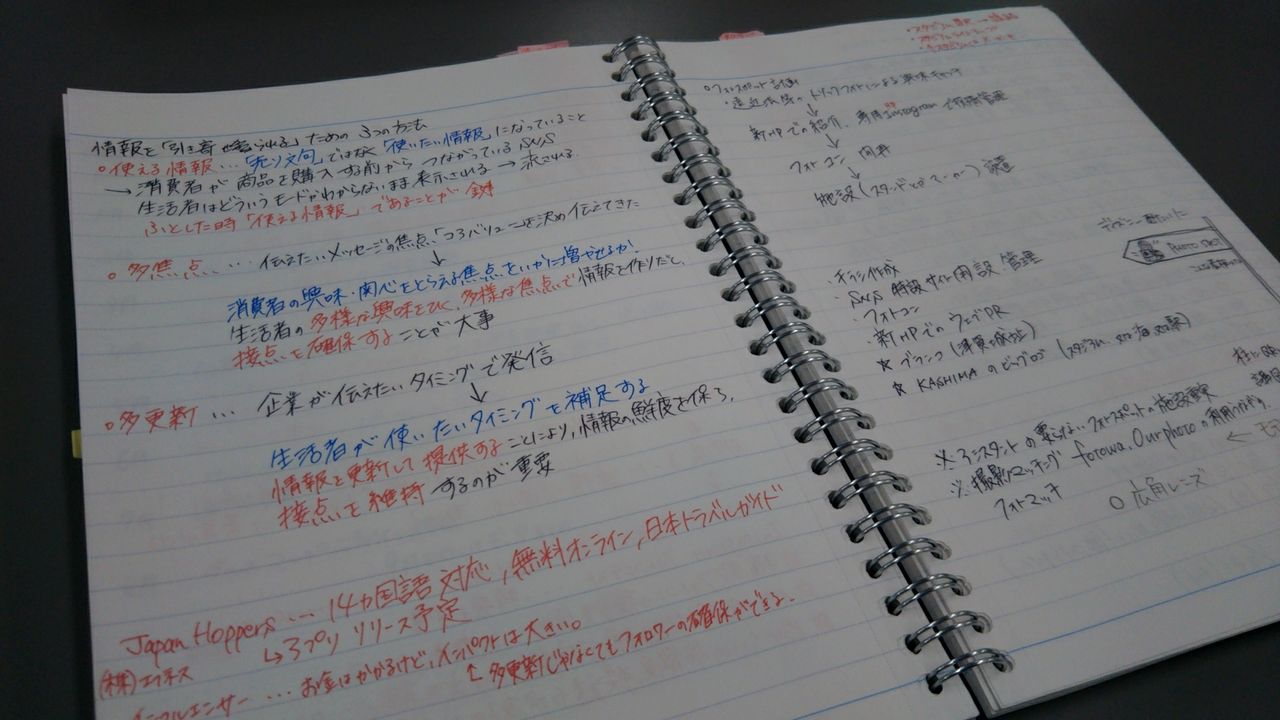 情報を「引き寄せられる」ための3つの方法
○使える情報…「売り文句」ではなく「使いたい情報」になっていること
→消費者が商品を購入する前からつながっているSNS
生活者はどういうモードかわからないまま表示される→流される
ふとした時「使える情報」であることが鍵
○多焦点…… 伝えたいメッセージの焦点、「コアバリュー」を決め伝えてきた
↓
消費者の興味・関心をとらえる焦点をいかに増やせるか!
生活者の多様な興味をひく、多様な焦点で情報を作りだし、
接点を確保することが大事
○多更新… 企業が伝えたいタイミングで発信
↓
生活者が使いたいタイミングを補足する
情報を更新して提供することにより、情報の鮮度を保ち、
接点を維持するのが重要
Japan Hoppers… 14カ国語対応, 無料オンライン, 日本トラベルガイド
↳アプリリリース予定
(株)エイネス
インフルエンサー… お金はかかるけど、インパクトは大きい。
↑多更新じゃなくてもフォロワーの確保ができる。
○フォトスポット計画
・遠近法等のトリックフォトによる興味キャッチ
↓
新HPでの紹介、専用Instagramで情報管理
↓
フォトコン開再
↓
施設(スタンド) 設置
・チラシ作成
・SNS 特設サイト開設 管理
・フォトコン
・新HPでのウェブPR
☆ブランコ
☆KASHIMAのビッグロゴ (スタジアム
※インスタントの要らないフォトスポットの施設充実
※撮影マッチング fotowa, Ourphotoの利用
フォトマッチ
○広角レンズ
PHOTO SPOT